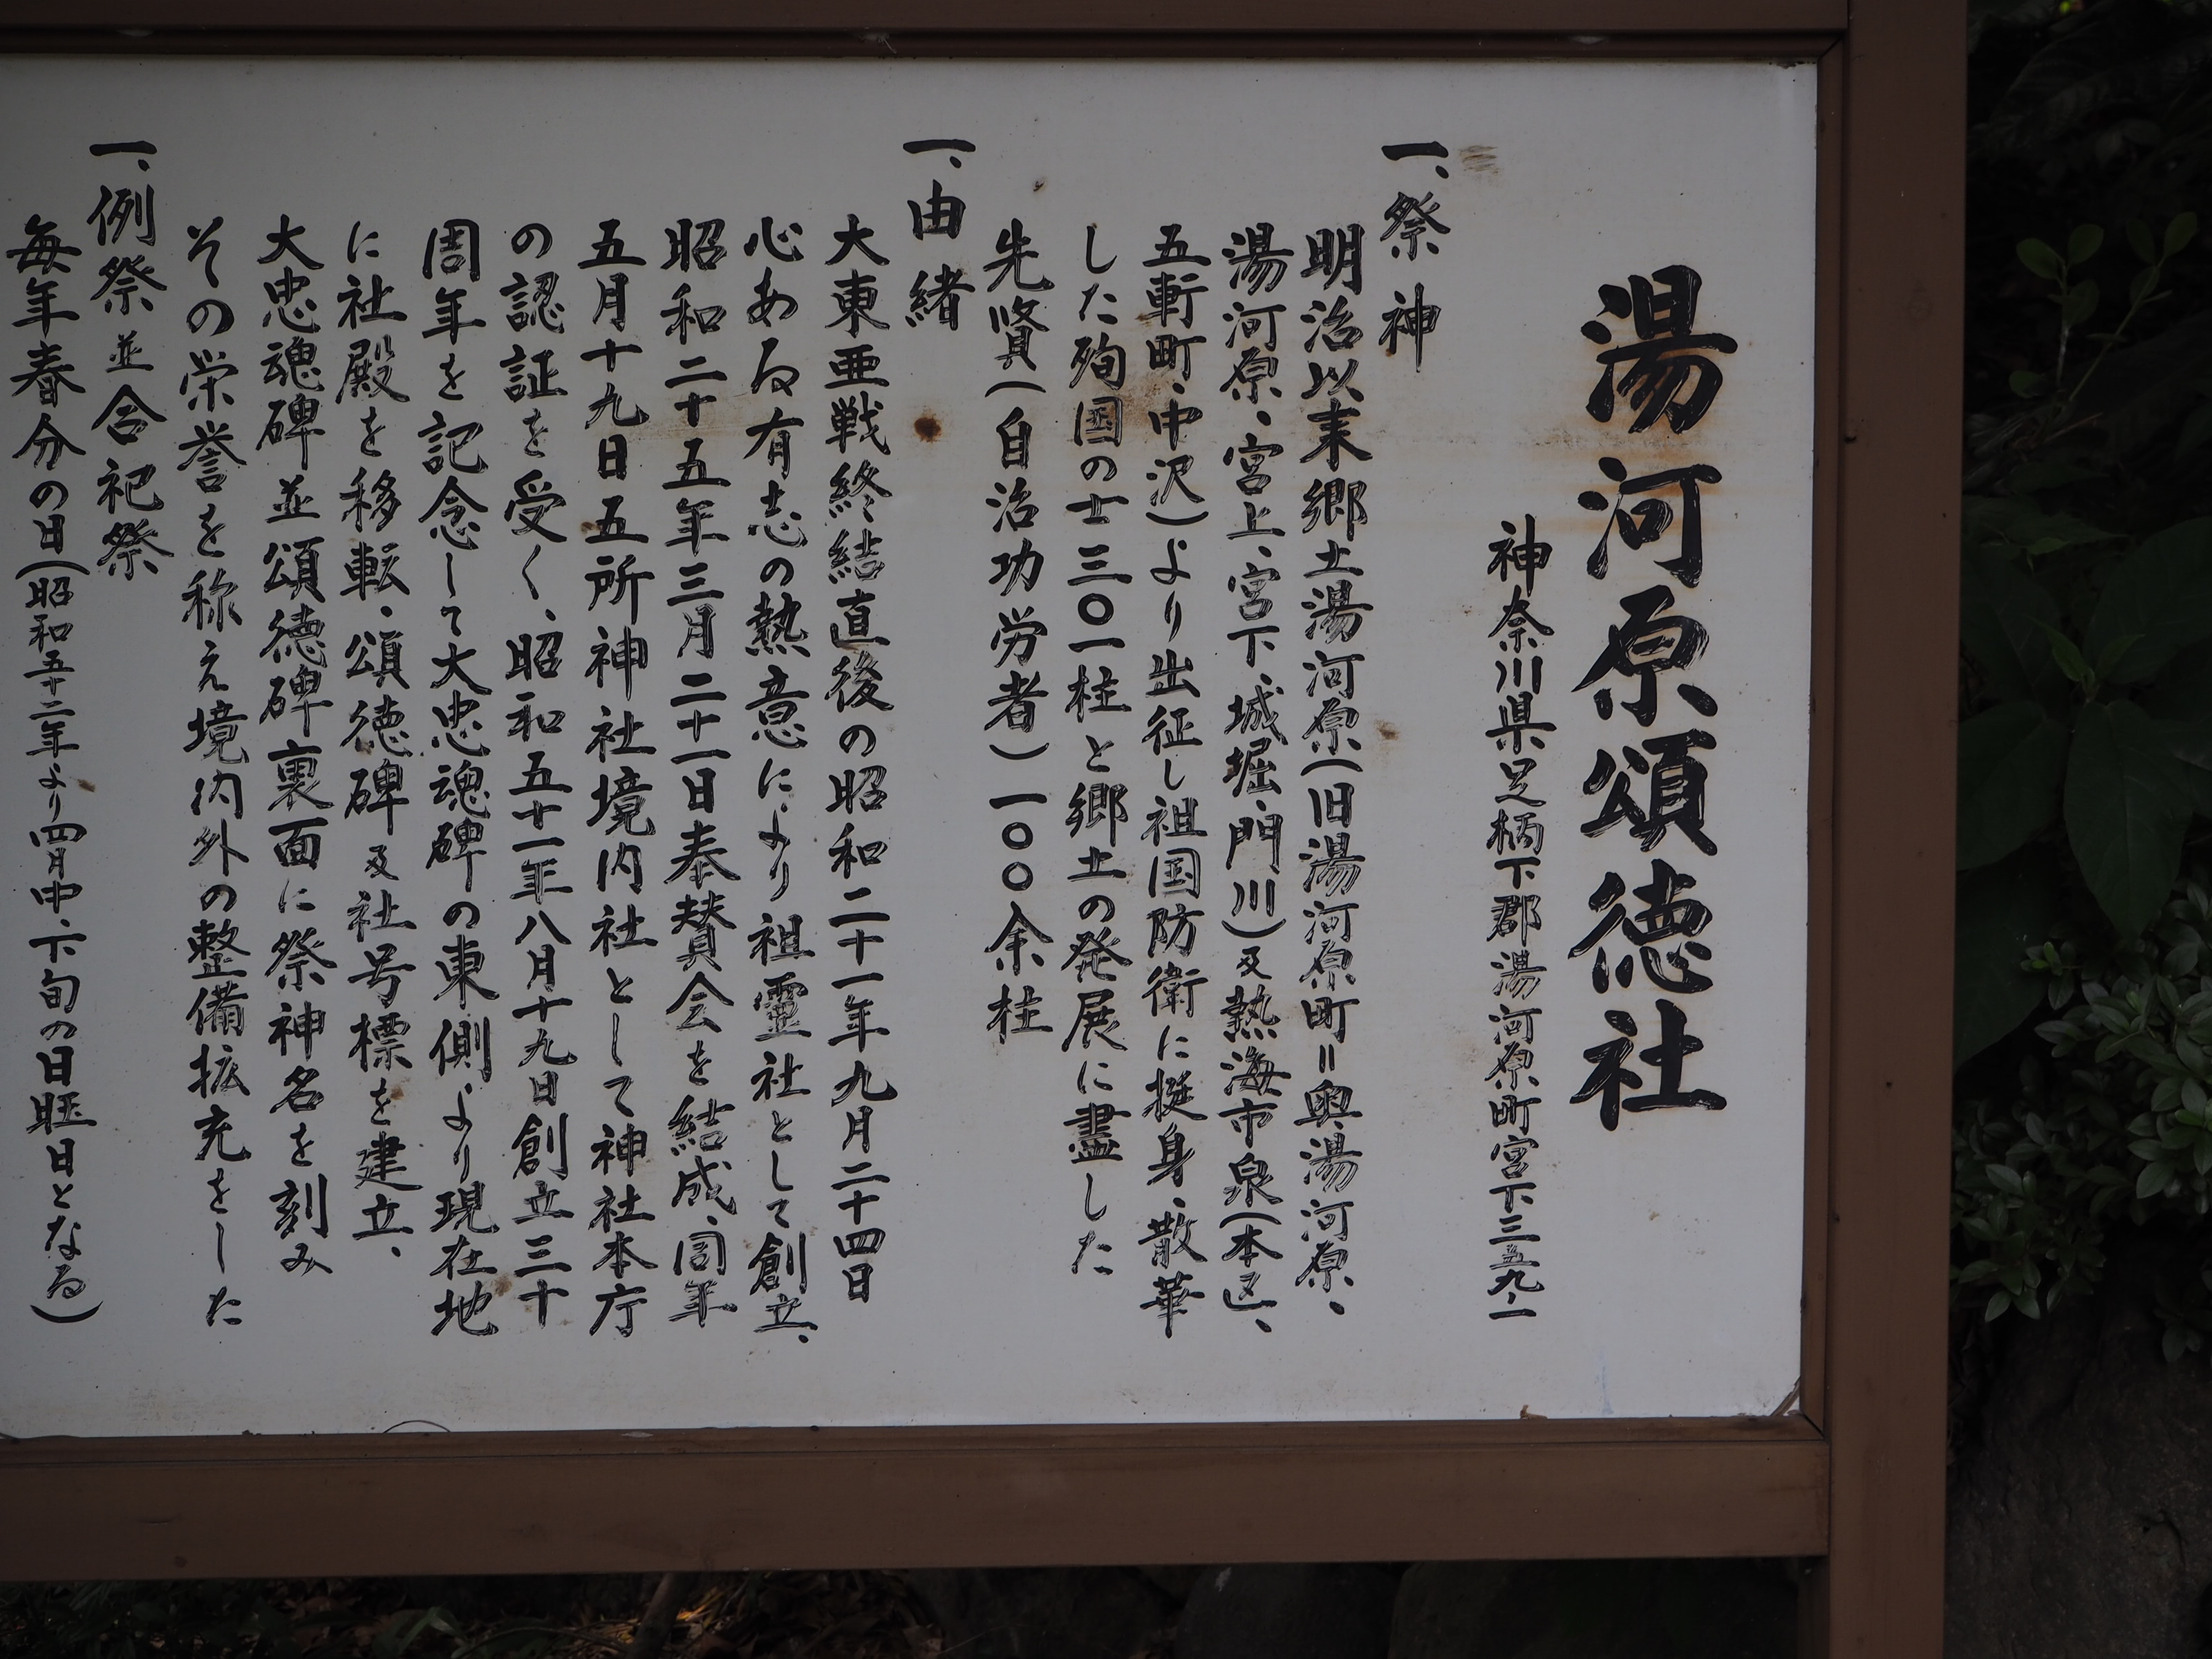 湯河原頌徳社
神奈川県足柄下郡湯河原町宮下三五九、一
一、祭神
明治以来郷土湯河原(旧湯河原町=奥湯河原、
湯河原、宮上、宮下、城堀、門川)及熱海市泉(本区、
五軒町、中沢)より出征し祖国防衛に挺身、散華
した殉国の士三〇一柱と郷土の発展に盡した
先賢(自治功労者)一〇〇余柱
一、由緒
大東亜戦終結直後の昭和二十一年九月二十四日
心ある有志の熱意により祖霊社として創立、
昭和二十五年三月二十一日奉賛会を結成、同年
五月十九日五所神社境内社として神社本庁
の認証を受く、昭和五十一年八月十九日創立三十
周年を記念して大忠魂碑の東側より現在地
に社殿を移転、頌徳碑及社号標を建立、
大忠魂碑並頌徳碑裏面に祭神名を刻み
その栄誉を称え境内外の整備拡充をした
一、例祭並合祀祭
毎年春分の日(昭和五十二年より四月中、下旬の日曜日となる)